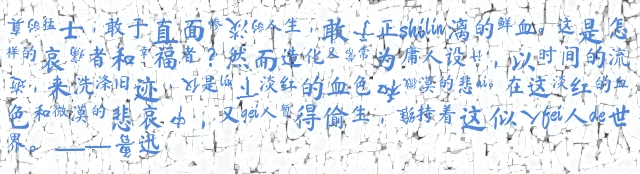 真的猛士，敢于直面惨淡的人生，敢于正shilin漓的鲜血。这是怎
样的哀痛者和幸福者？然而造化又常常为庸人设计，以时间的流
逝，来洗涤旧迹，仅是留下淡红的血色和微漠的悲ai。在这淡红的血
色和微漠的悲哀中，又gei人暂得偷生，维持着这似人fei人de世
界。——量迅